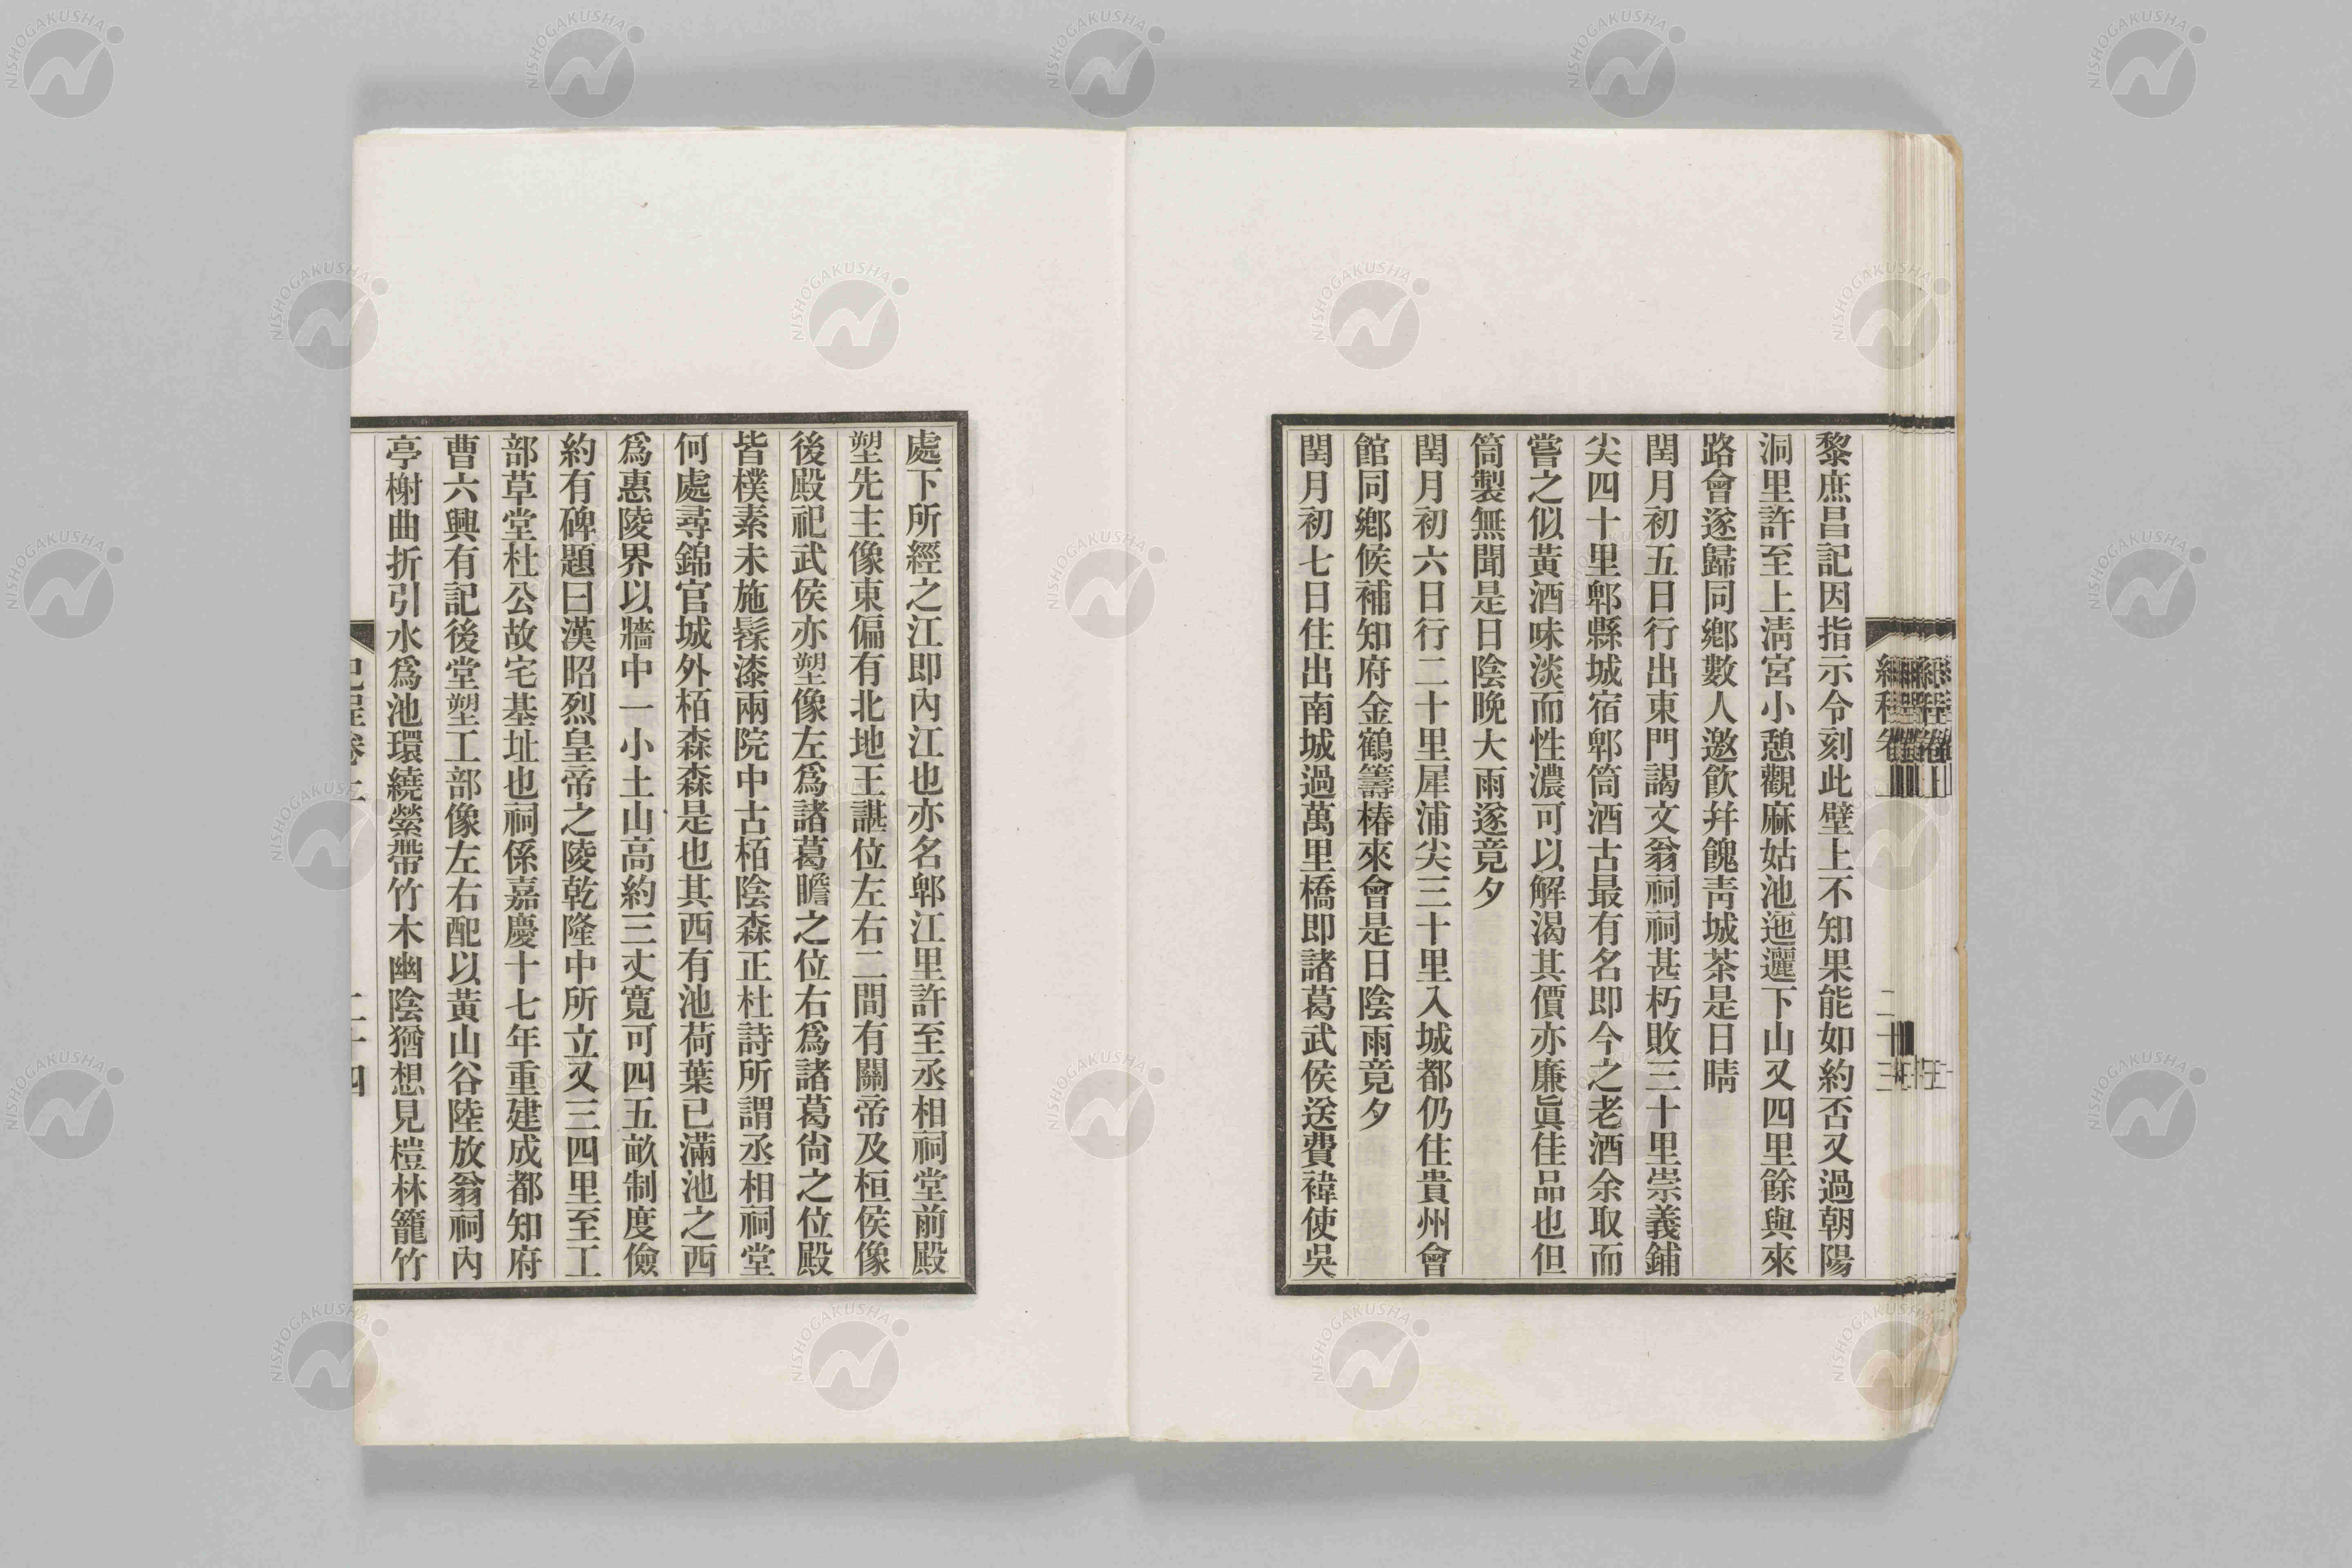 黎庶昌記因指示令刻此壁上不知果能如約否又過朝陽
洞里許至上淸宮小憩觀麻姑池迤邐下山又四里餘與來
路會遂歸同鄉數人邀飮幷餽靑城茶是日晴
閏月初五日行出東門謁文翁祠祠甚朽敗三十里崇義鋪
尖四十里郫縣城宿郫筒酒古最有名即今之老酒余取而
嘗之似黃酒味淡而性濃可以解渴其價亦廉眞佳品也但
筒製無聞是日陰晚大雨遂竟夕
閏月初六日行二十里犀浦尖三十里入城都仍住貴州會
館同鄉候補知府金鶴籌椿來會是日陰雨竟夕
閏月初七日住出南城過萬里橋即諸葛武侯送費褘使吳
處下所經之江即內江也亦名郫江里許至丞相祠堂前殿
塑先主像東偏有北地王諶位左右二間有關帝及桓侯像
後殿祀武侯亦塑像左爲諸葛瞻之位右爲諸葛尙之位殿
皆樸素未施髹漆兩院中古栢陰森正杜詩所謂丞相祠堂
何處尋錦官城外栢森森是也其西有池荷葉已滿池之西
爲惠陵界以牆中一小土山高約三丈寬可四五畝制度儉
約有碑題曰漢昭烈皇帝之陵乾隆中所立又三四里至工
部草堂杜公故宅基址也祠係嘉慶十七年重建成都知府
曹六興有記後堂塑工部像左右配以黃山谷陸放翁祠內
亭榭曲折引水爲池環繞縈帶竹木幽陰猶想見榿林籠竹
NISHOGAKUSHA